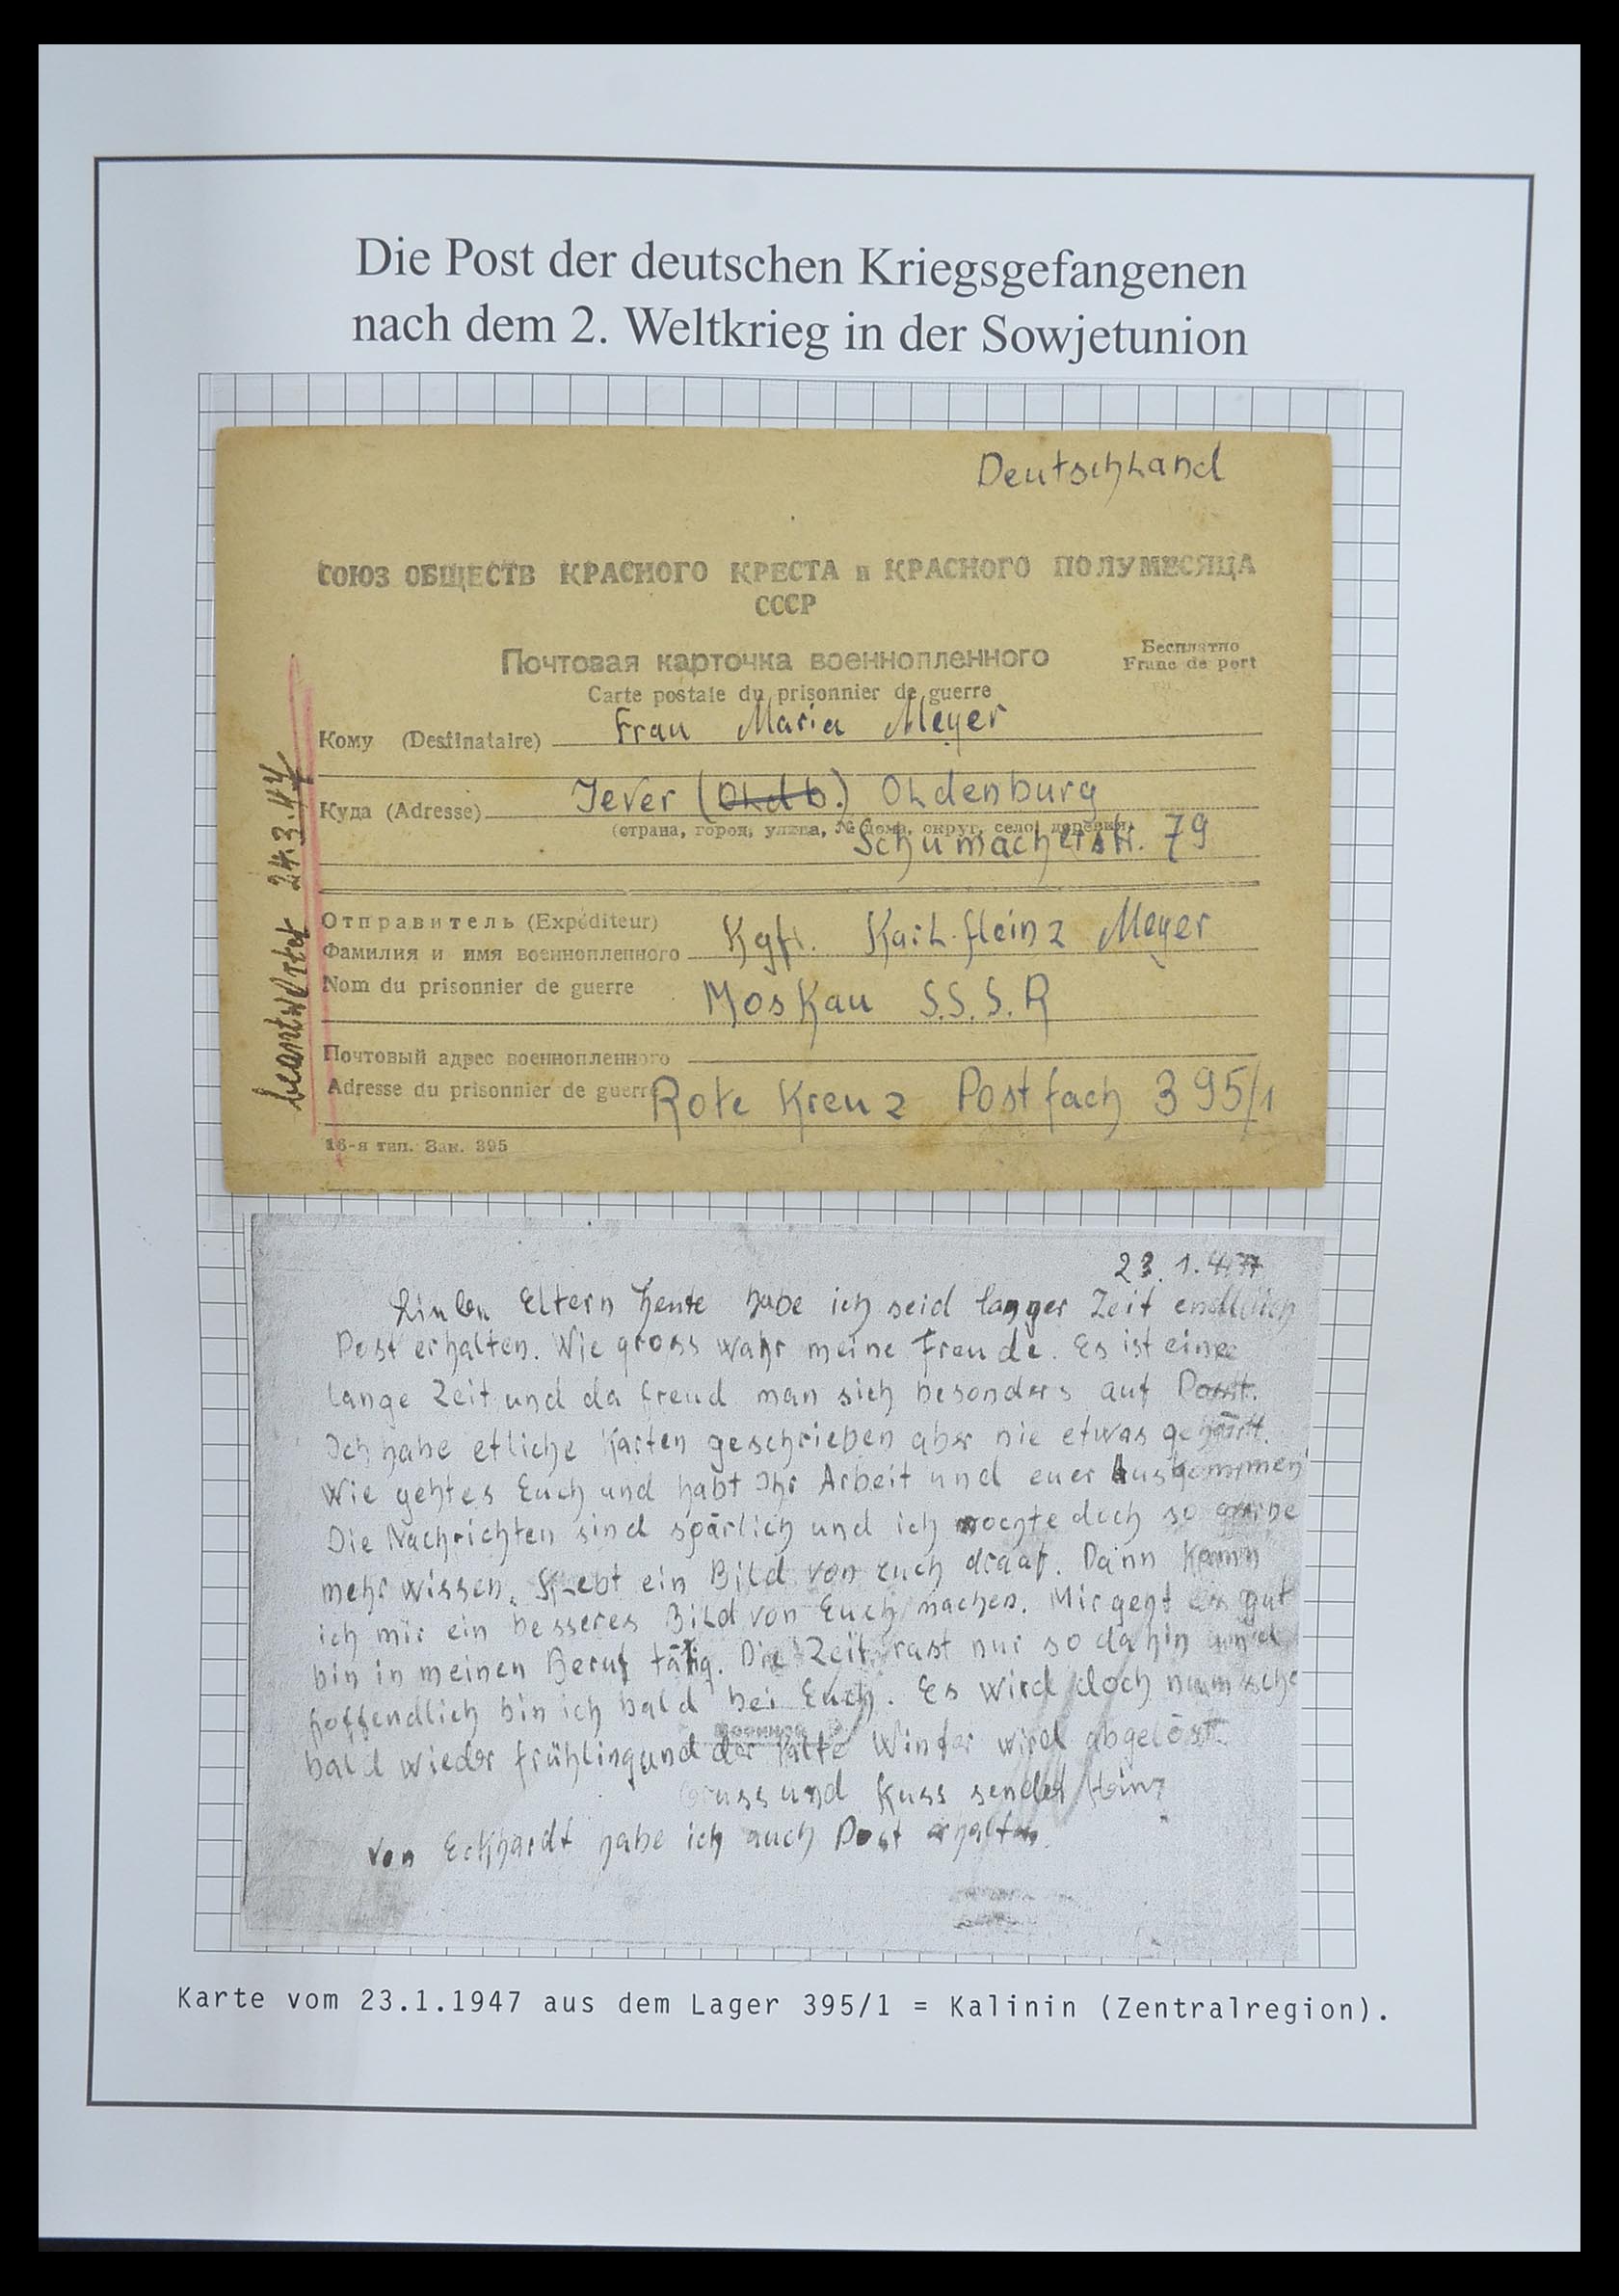 Die Post der deutschen Kriegsgefangenen
nach dem 2. Weltkrieg in der Sowjetunion
Deutschland
СОЮЗ ОБЩЕСТВ КРАСНОГО КРЕСТА и КРАСНОГО ПОЛУМЕСЯЦА
СССР
Почтовая карточка военнопленного
Бесплатно
Franc de port
Carte postale du prisonnier de guerre
Кому (Destinataire) Frau Maria Meyer
Куда (Adresse) Jever (Oldb.) Oldenburg
(страна, город, улица, № дома, округ, село, деревня)
Schumacherstr. 79
beantwortet 24.3.47
Отправитель (Expéditeur)
Фамилия и имя военнопленного Kgf. Karl-Heinz Meyer
Nom du prisonnier de guerre Moskau S.S.S.R
Почтовый адрес военнопленного
Adresse du prisonnier de guerre Rote Kreuz Postfach 395/1
16-я тип. Зак. 395
23.1.47
Lieben Eltern heute habe ich seid langer Zeit endllich
Post erhalten. Wie gross wahr meine Freude. Es ist eine
lange Zeit und da freud man sich besonders auf Post.
Ich habe etliche Karten geschrieben aber nie etwas gehört.
Wie geht es Euch und habt Ihr Arbeit und euer Auskommen
Die Nachrichten sind spärlich und ich mochte doch so gerne
mehr wissen. Klebt ein Bild von euch drauf. Dann kann
ich mir ein besseres Bild von Euch machen. Mir geht es gut
bin in meinen Beruf tätig. Die Zeit rast nur so dahin und
hoffendlich bin ich bald bei Euch. Es wird doch nun
bald wieder frühling und der kalte Winter wird abgelöst.
Gruss und Kuss sendet Heinz
Von Eckhardt habe ich auch Post erhalten.
Karte vom 23.1.1947 aus dem Lager 395/1 = Kalinin (Zentralregion).